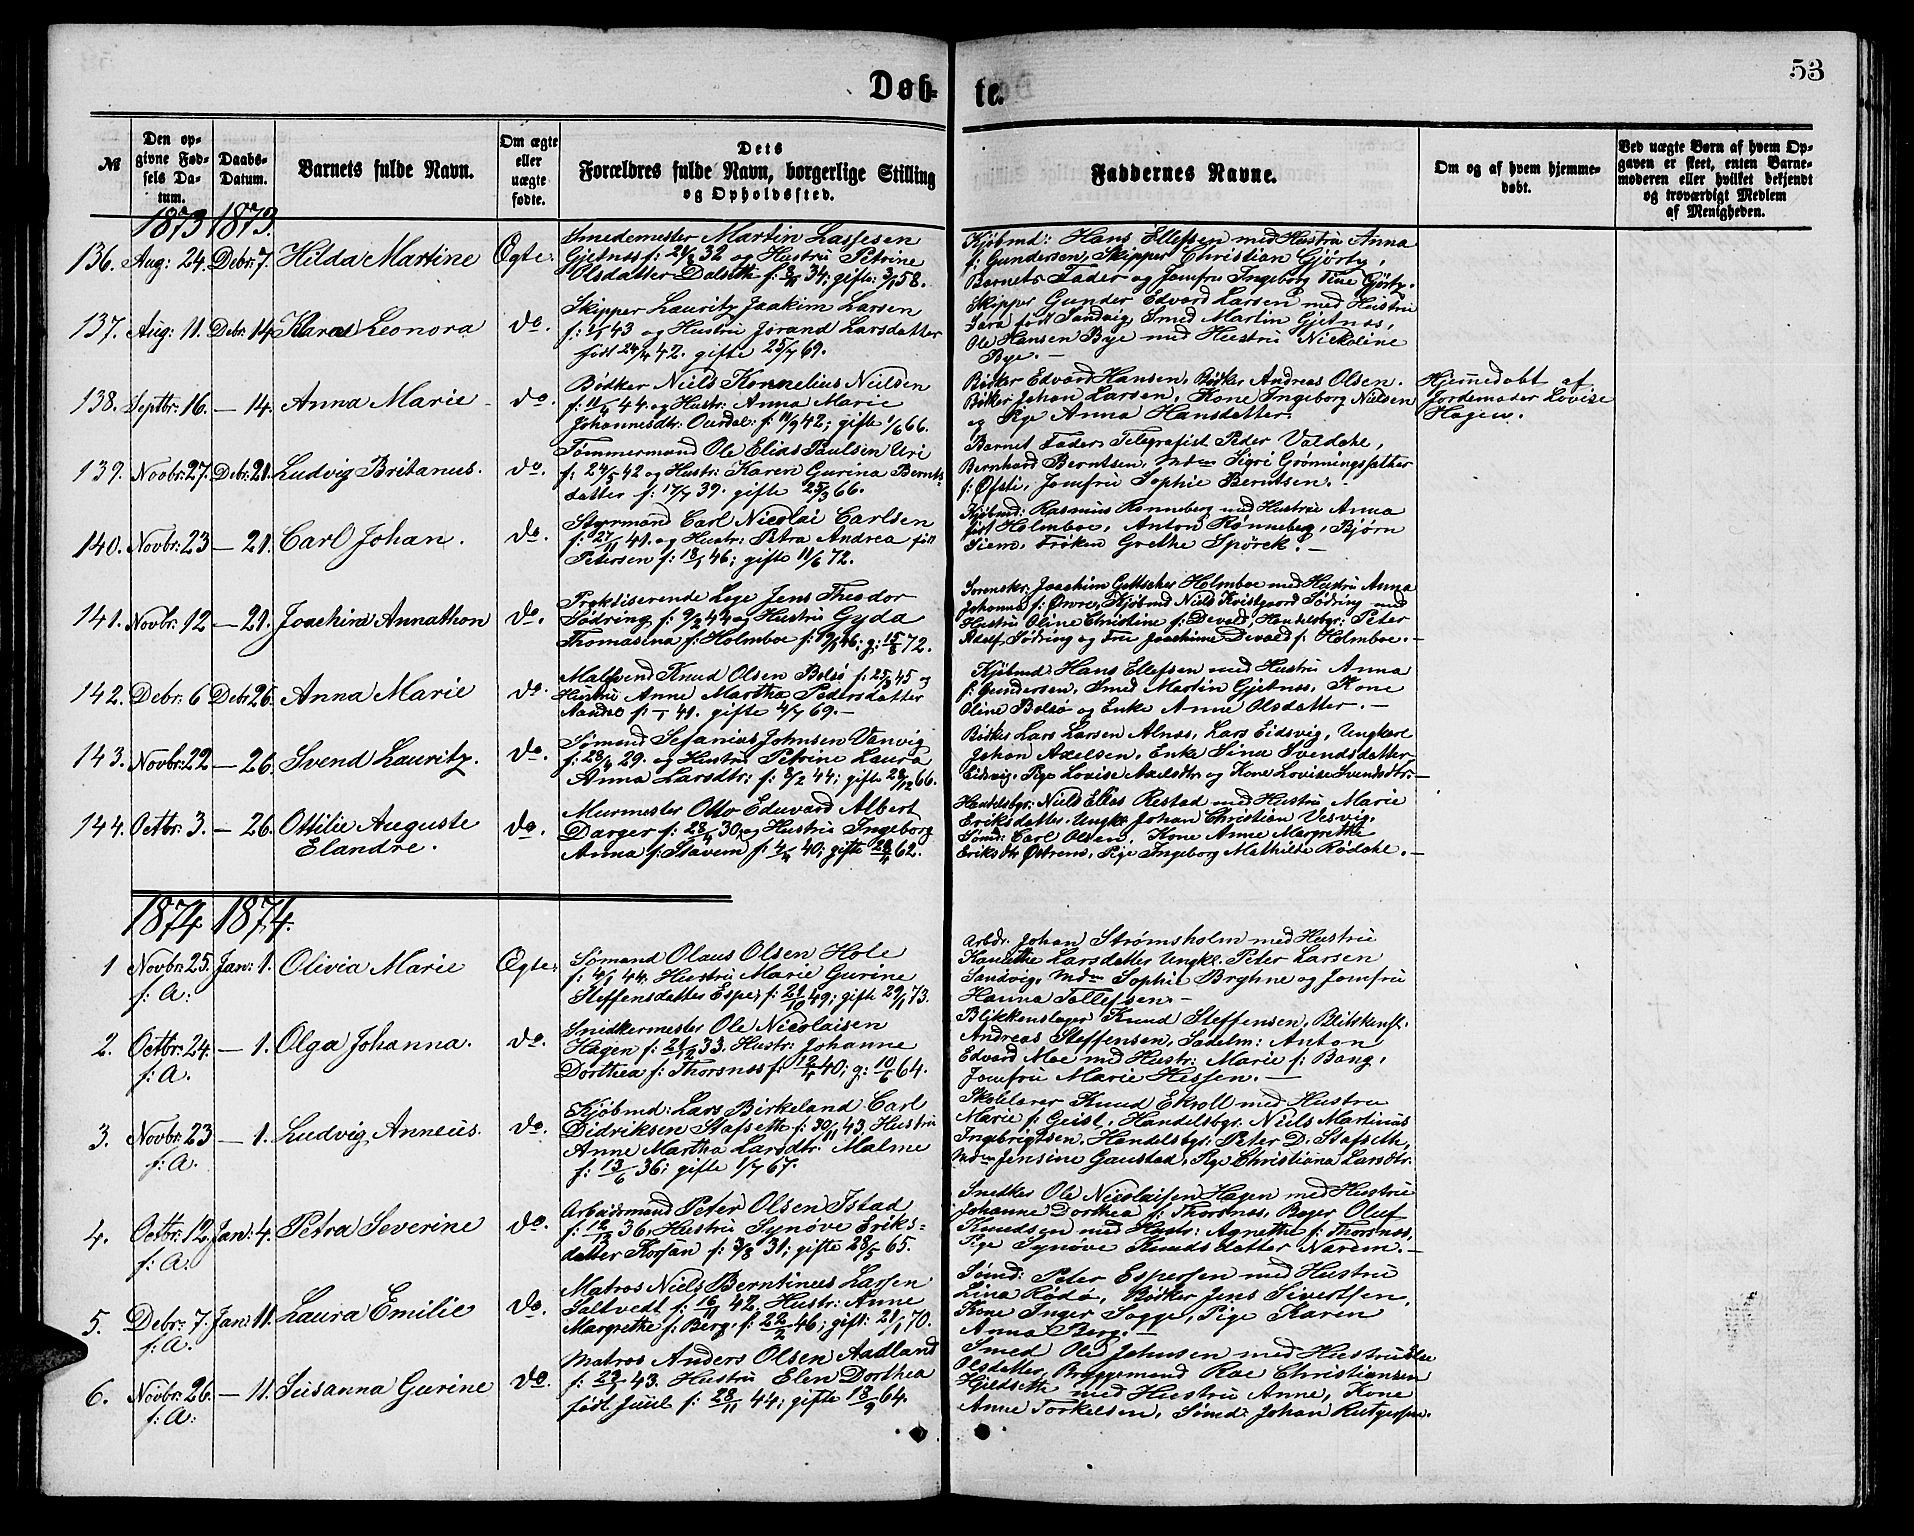 Døb-
te.
53
№
Den op-
givne Fød-
sels Da-
tum.
Daabs-
Datum.
Barnets fulde Navn.
Om ægte
eller
uægte
fødte.
Dets
Forældres fulde Navn, borgerlige Stilling
og Opholdssted.
Faddernes Navne.
Om og af hvem hjemme-
døbt.
Ved uægte Børn af hvem Op-
gaven er skeet, enten Barne-
moderen eller hvilket bekjendt
og troværdigt Medlem
af Menigheden.
1873 1873.
136. Aug: 24. Debr: 7. Hilda Martine Ægte.
Smedemester Martin Lassesen
Gjetnes f: 21/8 32 og Hustru Petrine
Olsdatter Dalseth f: 8/11 34; gifte 3/1 58.
Kjøbmd: Hans Ellefsen med Hustru Anna
f: Gundersen, Skipper Christian Gjørtz,
Barnets Fader og Jomfru Ingeborg Tine Gjørtz.
137. Aug: 11. Debr: 14. Klara Leonora do.
Skipper Lauritz Joakim Larsen
f: 43 og Hustru Jørand Larsdatter
født 24/4 42. gifte 25/7 69.
Skipper Gunder Edvard Larsen med Hustru
Sara født Sandvig, Smed Martin Gjetnes,
Ole Hansen Bye med Hustru Nickoline
Bye. —
138. Septbr: 16. — 14. Anna Marie do.
Bødker Niels Kornelius Nielsen
f: 11/4 44 og Hustr: Anna Marie
Johannesdtr: Overdal: f: 11/9 42; gifte 1/6 66.
Bødker Edvard Hansen, Bødker Andreas Olsen.
Bødker Johan Larsen, Kone Ingeborg Nielsen
og Pige Anna Hansdatter.
Hjemmedøbt af
Jordemoder Lovise
Hagen.
139. Novbr: 27. Debr: 21. Ludvig Britanus. do.
Tømmermand Ole Elias Paulsen Uri
f: 24/5 42 og Hustr: Karen Gurina Bernts-
datter f: 17/7 39. gifte 25/3 66.
Barnet Fader, Telegrafist Peder Valdahl,
Bernhard Berntsen, Mdm Sigri Grønningssæther
f: Øfsti, Jomfru Sophie Berntsen. —
140. Novbr: 23 — 21. Carl Johan. do.
Styrmand Carl Nicolai Carlsen
f: 27/11 41. og Hustr: Petra Andrea født
Petersen f: 18/1 46; gifte 11/6 72.
Kjøbmd: Rasmus Rønneberg med Hustru Anna
født Holmboe, Anton Rønneberg, Bjørn
Siem, Frøken Grethe Spörck. —
141. Novbr: 12 — 21. Joachim Annathon do.
Praktiserende Læge Jens Theodor
Sødring f: 9/2 44 og Hustru Gyda
Thomasina f: Holmboe f: 19/1 46; g: 15/8 72.
Sorenskr: Joachim Gottsche Holmboe med Hustru Anna
Johanna f: Øwre, Kjøbmd Niels Kvistgaard Sødring med
Hustru Oline Christine f: Devold, Handelsbgr: Peter
Adolf Sødring og Fru Joachime Devold f: Holmboe. —
142. Debr: 6 Debr: 26. Anna Marie do.
Matrend Knud Olsen Bolsø f: 25/9 45 og
Hustru Anne Martha Pedersdatter
Nandsæ f: 41. gifte 4/7 69. —
Kjøbmd: Hans Ellefsen med Hustru Anna
f: Gundersen, Smed Martin Gjetnes, Kone
Oline Bolsø og Enke Anne Olsdatter. —
143. Novbr: 22 — 26. Svend Lauritz. do.
Sømand Stefanius Johnsen Vanvig
f: 28/4 29. og Hustru Petrine Laura
Anna Larsdtr: f: 8/2 44; gifte 28/12 66.
Bødker Lars Larsen Alnes, Lars Eidsvig, Ungkarl
Johan Axelsen, Enke Sina Svendsdatter
Eidsvig, Pige Lovise Axelsdtr og Kone Lovise Svendsdtr: —
144. Octbr: 3. — 26. Ottilie Auguste
Elandre.
do.
Murmester Otto Eduard Albert
Darger f: 23/4 30, og Hustru Ingeborg
Anna f: Stavem f: 4/4 40; gifte 28/4 62.
Handelsbgr: Niels Elias Restad med Hustru Marie
Eriksdatter. Ungkr. Johan Christian Vesvig,
Sømd: Carl Olsen, Kone Anne Margrethe
Eriksdtr Østrem, Pige Ingeborg Mathilde Rødahl. —
1874 1874.
1 Novbr: 25. Jan: 1. Olivia Marie Ægte:
f: A:
Sømand Olaus Olsen Hole
f: 4/1 44. Hustru Marie Gurine
Steffensdatter Espes f: 21/10 49; gifte 29/1 73.
Arbdr. Johan Strømsholm med Hustru
Kanutte Larsdatter Ungkr. Peter Larsen
Sandvig, Mdm Sophie Bryhne og Jomfru
Hanna Tollefsen. —
2. Octbr: 24. — 1. Olga Johanna. do.
f: A.
Snedkermester Ole Nicolaisen
Hagen f: 21/12 33. Hustr: Johanne
Dorthea f: Thorsnes f: 12/4 40; g: 10/6 64.
Blikkenslager Knud Steffensen, Blikkensl.
Andreas Steffensen, Sadelm: Anton
Edvard Moe med Hustr: Marie f: Bang,
Jomfru Marie Hessen. —
3. Novbr: 23 — 1. Ludvig Anneus. do.
f: A.
Kjøbmd: Lars Birkeland Carl
Didriksen Stafseth f: 30/11 43, Hustru
Anne Martha Larsdtr: Malme
f: 13/6 36; gifte 1/7 67.
Skolelærer Knud Ekroll med Hustru
Marie f: Geist, Handelsbgr: Niels Martinus
Ingebrigtsen, Handelsbgr: Peter D. Stafseth,
Mdm Jensine Gaustad, Pige Christiana Larsdtr.
4. Octbr: 12. Jan: 4. Petra Severine do.
f: A.
Arbeidsmand Peter Olsen Istad
f: 12/12 36, Hustru Synøve Eriks-
datter Korsan f: 3/8 31; gifte 28/5 65.
Snedker Ole Nicolaisen Hagen med Hustru
Johanne Dorthea f: Thorsnes, Bager Oluf
Knudsen med Hustr: Agnethe f: Thorsnes,
Pige Synøve Knudsdatter Narem. —
5. Debr: 7. Jan: 11. Laura Emilie do.
f: A.
Matros Niels Berntinus Larsen
Saltvedt f: 16/11 42, Hustr: Anne
Margrethe f: Berg, f: 22/2 46; gift: 21/1 70.
Sømd: Peter Espersen med Hustru
Lina Rødø, Bødker Jens Sivertsen,
Kone Inger Sogge, Pige Karen
Anna Berg. —
6. Novbr: 26. — 11. Susanna Gurine do.
f: A:
Matros Anders Olsen Aadland
f: 43. Hustru Elen Dorthea
født Juul f: 28/11 44; gifte 18/9 64.
Smed Ole Johnsen med Hustru Else
Olsdatter, Bryggemand Roe Christiansen
Hjeldseth med Hustru Anne, Kone
Anne Torkelsen, Sømd: Johan Rutgersen.